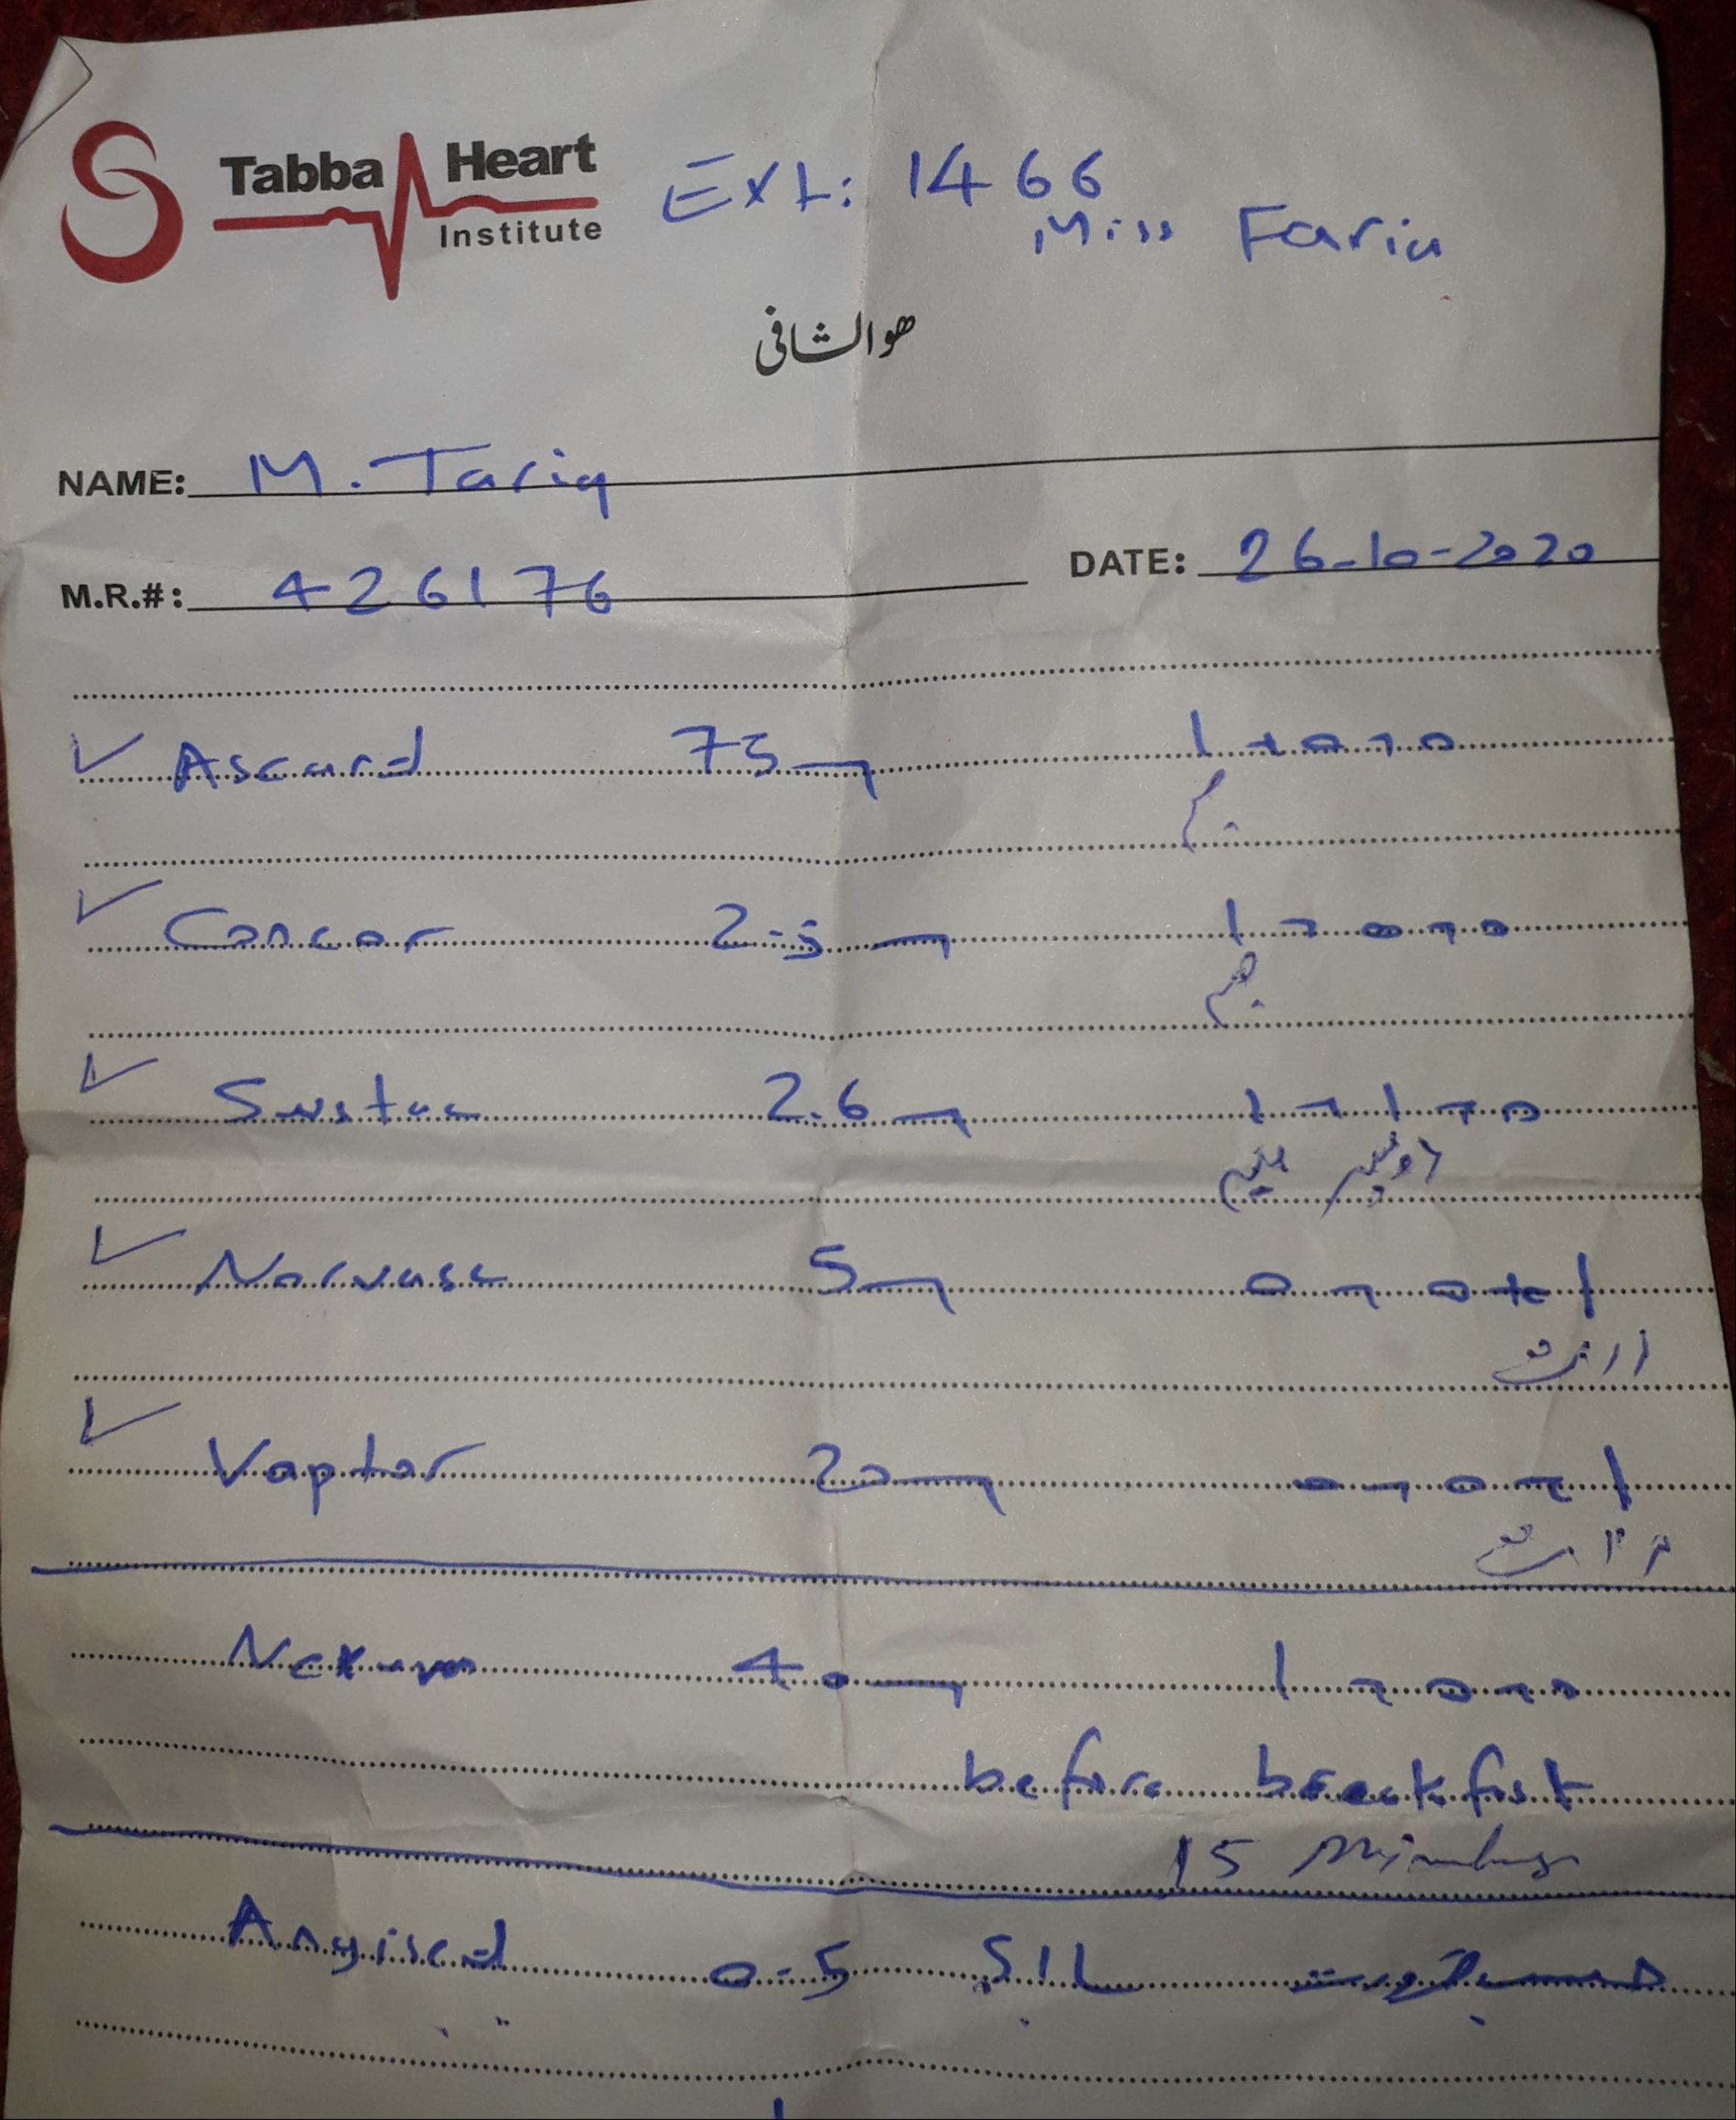 Tabba Heart
Institute
Ext: 1466
Miss Faria
ھوالشافی
NAME: M. Tariq
M.R.#: 426176
DATE: 26-10-2020
Ascard 75m 1+0+0
صبح
Concor 2.5m 1+0+0
صبح
Sustac 2.6m 1+1+0
صبح دوپہر
Norvasc 5m 0+0+1
رات
Vaptor 20m 0+0+1
رات
Nexum 40m 1+0+0
before breakfast
15 Minutes
Angised 0.5 S/L